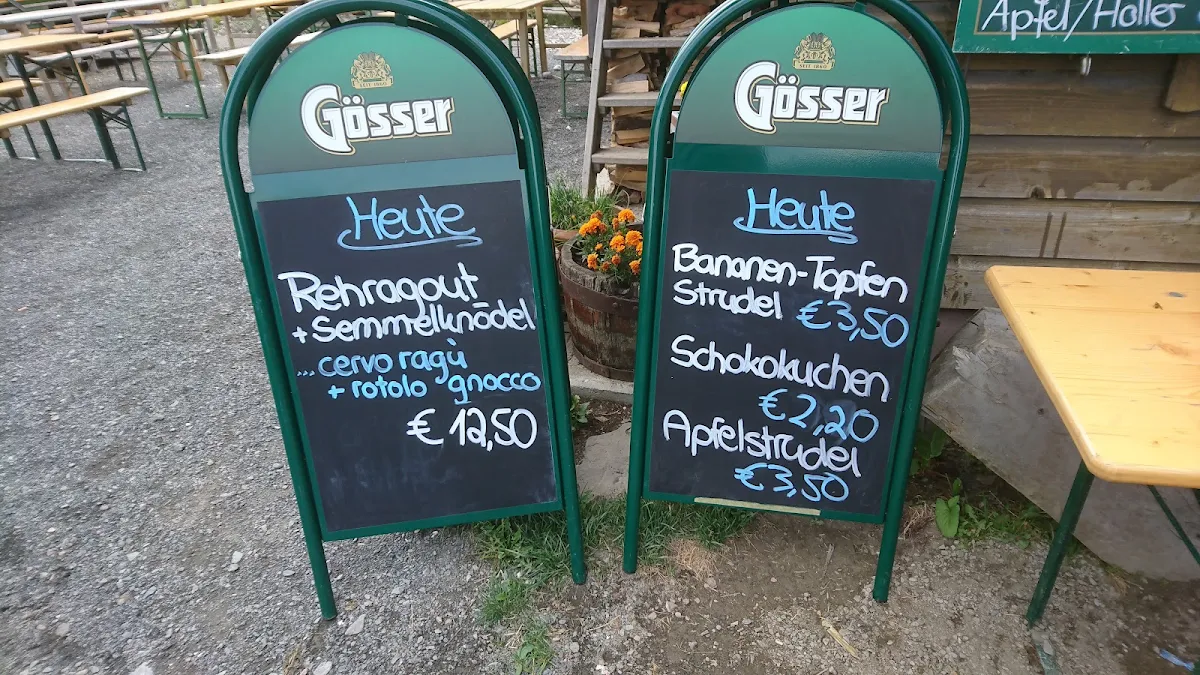 Gösser
Heute
Rehragout
+ Semmelknödel
...cervo ragù
+ rotolo gnocco
€ 12,50
SEIT 1860
Gösser
Heute
Bananen-Topfen
Strudel €3,50
Schokokuchen
€2,20
Apfelstrudel
€3,50
Apfel/Holler